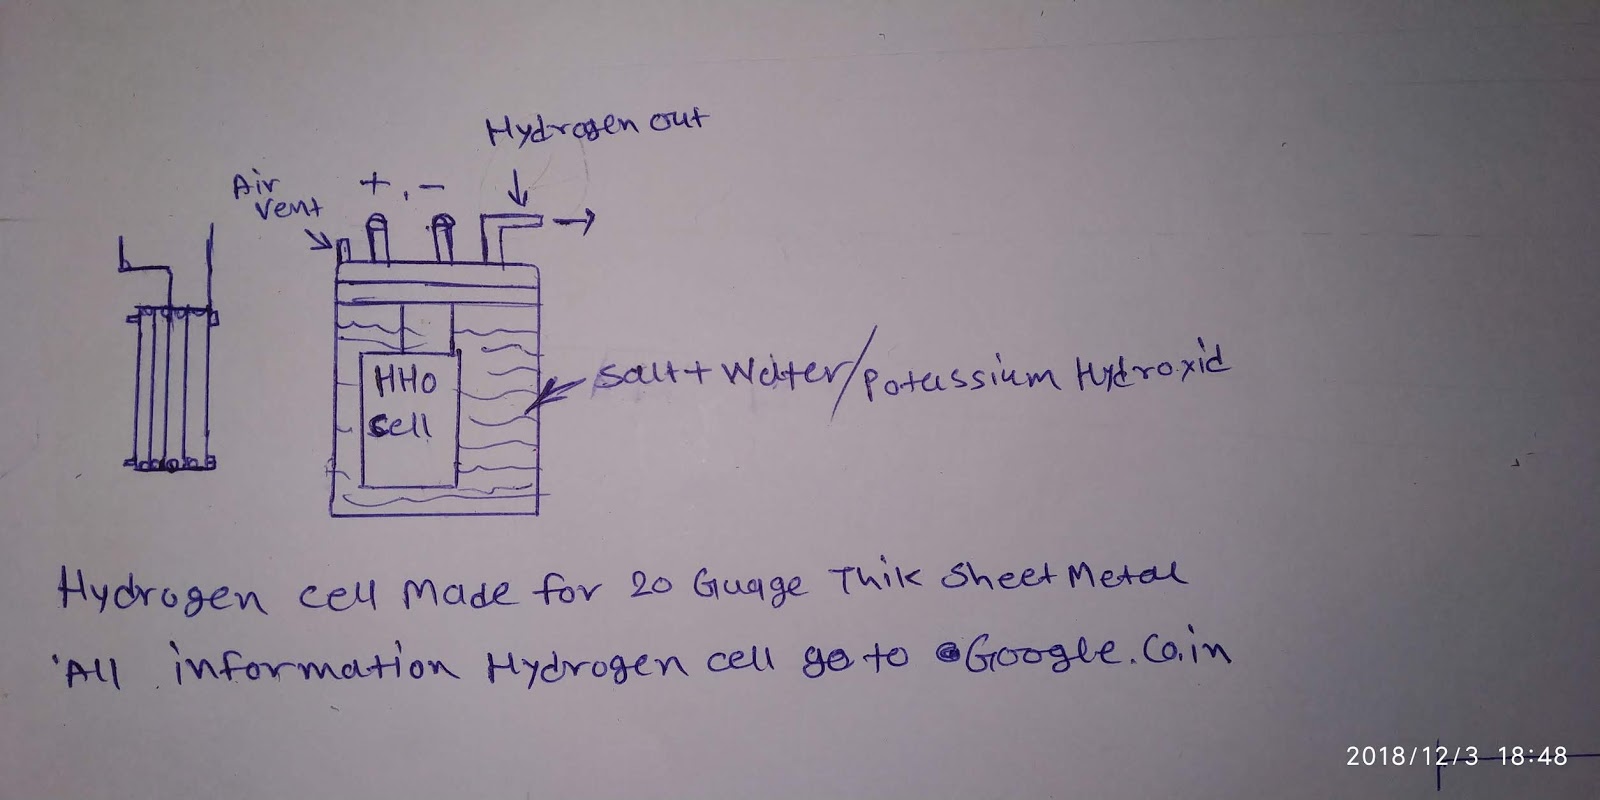 Hydrogen out
Air
vent
+, -
HHO
cell
Salt + Water/Potassium Hydroxid
Hydrogen cell Made for 20 Guage Thik Sheet Metal
All information Hydrogen cell go to Google.co.in
2018/12/3 18:48